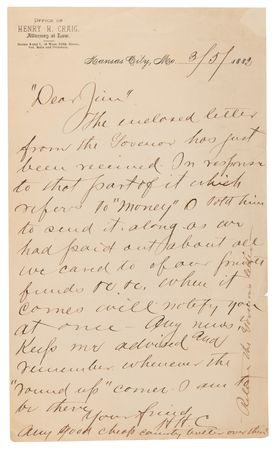 OFFICE OF
HENRY H. CRAIG,
Attorney at Law,
Kansas City, Mo. 3/5/ 1882
"Dear Jim"
The enclosed letter
from the Govenor has just
been received. In response
to that part of it which
refers to "money" I told him
to send it along as we
had paid out about all
we cared to of our private
funds &c &c. When it
comes will notify you
at once - Any news -
Keep me advised and
remember whenever the
"round up" comes I am to
be there
Your friend
H H C
Any good cheap country butter over there?
Return the Governors letter